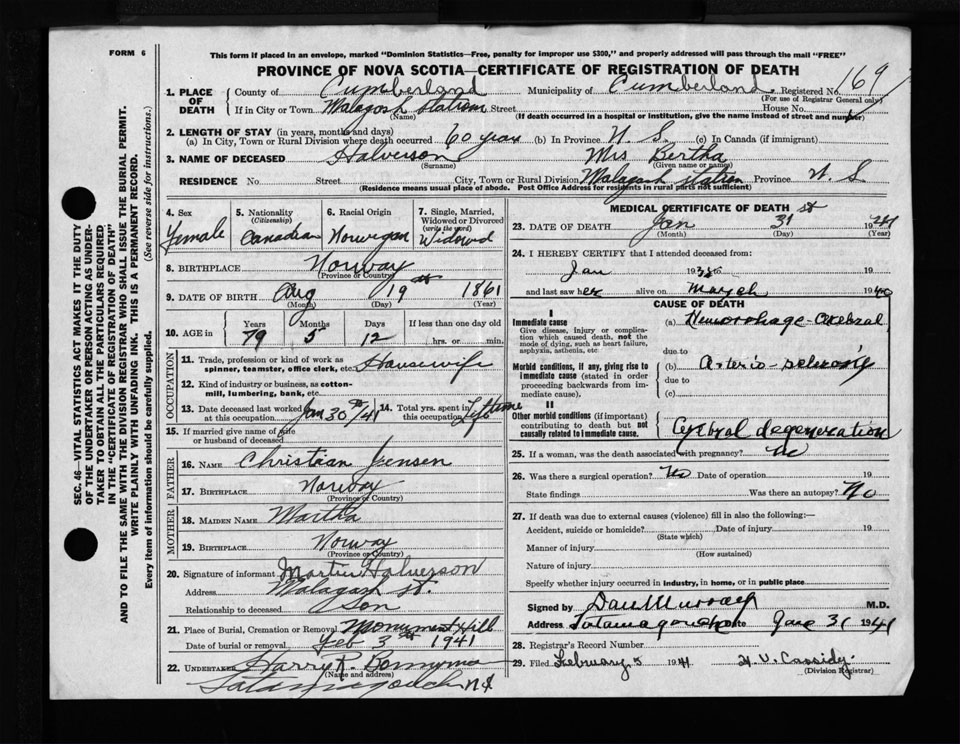 FORM 6
This form if placed in an envelope, marked "Dominion Statistics—Free, penalty for improper use $300," and properly addressed will pass through the mail "FREE"
PROVINCE OF NOVA SCOTIA—CERTIFICATE OF REGISTRATION OF DEATH
1. PLACE OF DEATH
County of Cumberland Municipality of Cumberland Registered No. 169
(For use of Registrar General only)
If in City or Town Malagash Station Street House No.
(Name) (If death occurred in a hospital or institution, give the name instead of street and number)
2. LENGTH OF STAY (in years, months and days)
(a) In City, Town or Rural Division where death occurred 60 years (b) In Province N. S. (c) In Canada (if immigrant)
3. NAME OF DECEASED Halverson Mrs Bertha
(Surname) (Given name or names)
RESIDENCE No. Street City, Town or Rural Division Malagash Station Province N. S
(Residence means usual place of abode. Post Office Address for residents in rural parts not sufficient)
4. Sex Female
5. Nationality (Citizenship) Canadian
6. Racial Origin Norwegan
7. Single, Married, Widowed or Divorced (write the word) Widowed
8. BIRTHPLACE Norway
(Province or Country)
9. DATE OF BIRTH Aug 19 th 1861
(Month) (Day) (Year)
10. AGE in Years Months Days If less than one day old
79 5 12 hrs. or min.
OCCUPATION
11. Trade, profession or kind of work as spinner, teamster, office clerk, etc. Housewife
12. Kind of industry or business, as cotton-mill, lumbering, bank, etc.
13. Date deceased last worked at this occupation Jan 30th/41
14. Total yrs. spent in this occupation Lifetime
15. If married give name of wife or husband of deceased
FATHER
16. NAME Christian Jensen
17. BIRTHPLACE Norway
(Province or Country)
MOTHER
18. MAIDEN NAME Martha
19. BIRTHPLACE Norway
(Province or Country)
20. Signature of informant Martin Halverson
Address Malagash St.
Relationship to deceased Son
21. Place of Burial, Cremation or Removal Monument Hill
Date of burial or removal Feb 3rd 1941
22. UNDERTAKER Harry R. Bonnyman
(Name and address)
Tatamagouche N S
MEDICAL CERTIFICATE OF DEATH
23. DATE OF DEATH Jan 31 st 1941
(Month) (Day) (Year)
24. I HEREBY CERTIFY that I attended deceased from:
Jan 1938 to 19
and last saw her alive on March 1940
CAUSE OF DEATH
I
Immediate cause
Give disease, injury or complication which caused death, not the mode of dying, such as heart failure, asphyxia, asthenia, etc
(a) Hemorrhage - Cerebral
due to
Morbid conditions, if any, giving rise to immediate cause (stated in order proceeding backwards from immediate cause)
(b)
due to
(c)
II
Other morbid conditions (if important) contributing to death but not causally related to immediate cause.
Cerebral degeneration
25. If a woman, was the death associated with pregnancy? No
26. Was there a surgical operation? No Date of operation 19
State findings Was there an autopsy? No
27. If death was due to external causes (violence) fill in also the following:—
Accident, suicide or homicide? Date of injury 19
(State which)
Manner of injury
(How sustained)
Nature of injury
Specify whether injury occurred in industry, in home, or in public place
Signed by Dan Murray M.D.
Address Tatamagouche Date Jan 31 1941
28. Registrar's Record Number
29. Filed February 5 1941 H. V. Cassidy
(Division Registrar)
SEC. 46—VITAL STATISTICS ACT MAKES IT THE DUTY
OF THE UNDERTAKER OR PERSON ACTING AS UNDER-
TAKER TO OBTAIN ALL THE PARTICULARS REQUIRED
IN THE "CERTIFICATE OF REGISTRATION OF DEATH"
AND TO FILE THE SAME WITH THE DIVISION REGISTRAR WHO SHALL ISSUE THE BURIAL PERMIT.
WRITE PLAINLY WITH UNFADING INK. THIS IS A PERMANENT RECORD.
Every item of information should be carefully supplied. (See reverse side for instructions.)